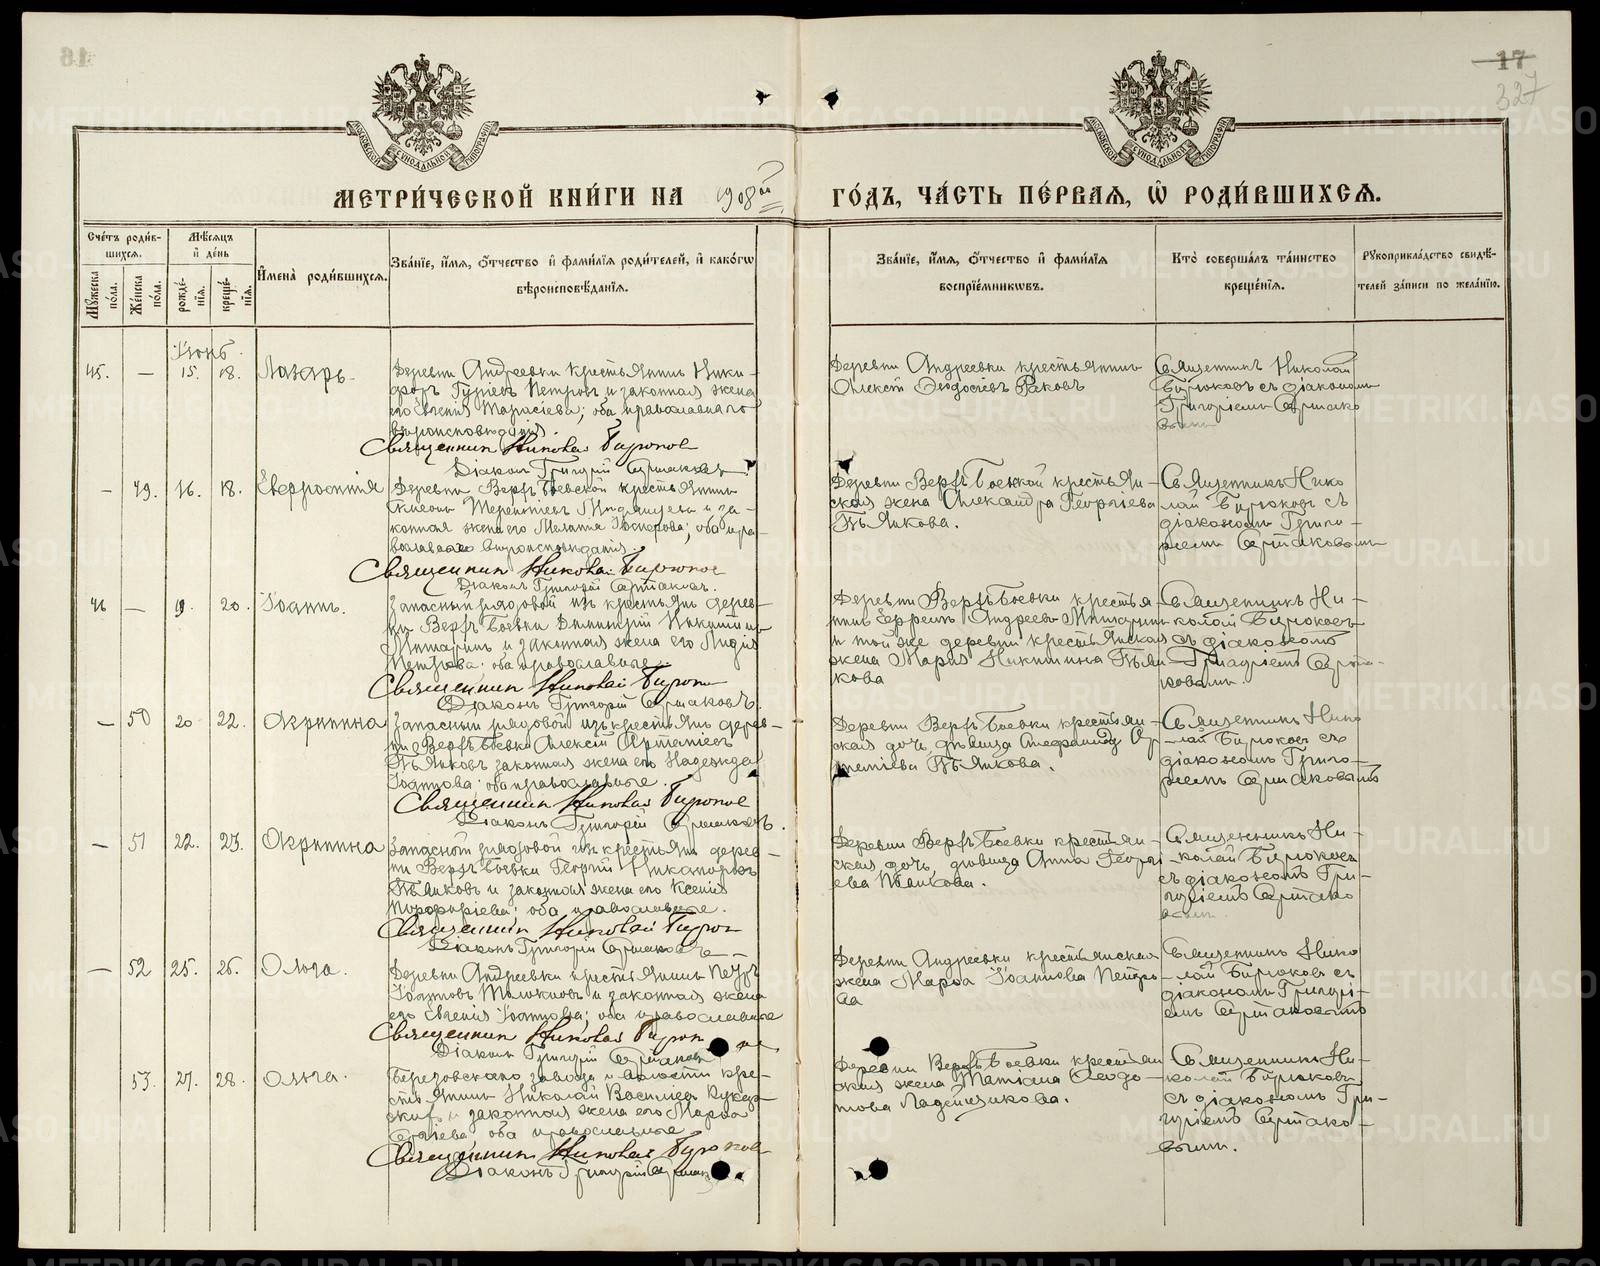 17
327
МЕТРИ́ЧЕСКОЙ КНИ́ГИ НА 1908ой ГО́ДЪ, ЧА́СТЬ ПЕ́РВАЯ, Ѽ РОДИ́ВШИХСѦ.
Сче́тъ роди́в-
шихся.
Мѣ́сяцъ
и҆ де́нь
Мꙋ́жеска по́ла.
Же́нска по́ла.
рожде́-
нїѧ.
креще́-
нїѧ.
И҆мена̀ роди́вшихся.
Зва́нїе, и҆́мя, ѻ҆́тчество и҆ фами́лїя роди́телей, и҆ како́гѡ
вѣроисповѣ́данїя.
Зва́нїе, и҆́мя, ѻ҆́тчество и҆ фами́лїя
воспрїе́мникѡвъ.
Кто̀ соверша́лъ та́инство
креще́нїя.
Рꙋкоприкла́дство свидѣ́-
телей за́писи по жела́нїю.
Іюнь.
45. — 15. 18. Лазарь.
Деревни Андреевки крестьянинъ Ники-
форъ Гурiевъ Петровъ и законная жена
его Евгенія Тарасіева; оба православнаго
вѣроисповѣданія
Священник Николай Бирюков
Діаконъ Григорій Ермаковъ
Деревни Андреевки крестьянинъ
Алексѣй Ѳеодосіевъ Раковъ
Священникъ Николай
Бирюковъ съ діакономъ
Григоріемъ Ермако
вымъ
— 49. 16. 18. Евфросинія
Деревни Верхъ Боевской крестьянинъ
законная жена его Меланія
православнаго вѣроисповѣданія.
Священник Николай Бирюков
Діаконъ Григорій Ермаковъ.
Деревни Верхъ Боевкой крестьян-
ская жена Александра Георгіева
Пьянкова.
Священникъ Нико
лай Бирюковъ съ
діакономъ Григо-
ріемъ Ермаковымъ
46 — 19. 20. Іоаннъ.
Запасный рядовой изъ крестьянъ дерев-
ни Верхъ Боевки Димитрій Никитинъ
Митаринъ и законная жена его Лидія
Петрова; оба православные.
Священник Николай Бирюков
Діаконъ Григорій Ермаковъ.
Деревни Верхъ Боевки крестья-
нинъ Ефремъ Андреевъ Митаринъ
и той же деревни крестьянская
жена Марія Никитина Пьян
кова
Священникъ Ни-
колай Бирюковъ
съ діакономъ
Григоріемъ Ерма-
ковымъ.
— 50 20 22. Акриппина
Запасный рядовой изъ крестьянъ дерев-
ни Верхъ Боевки Алексѣй Артеміевъ
Пьянковъ законная жена его Надежда
Іоаннова; оба православные.
Священник Николай Бирюков
Діаконъ Григорій Ермаковъ.
Деревни Верхъ Боевки крестьян-
ская дочь дѣвица Ар-
теміева Пьянкова.
Священникъ Нико
лай Бирюковъ съ
діакономъ Григо-
ріемъ Ермаковымъ
— 51 22. 23. Акриппина
Запасный рядовой изъ крестьянъ дерев-
ни Верхъ Боевки Георгій Никаноровъ
Пьянковъ и законная жена его Ксенія
Порфиріева; оба православные.
Священник Николай Бирюков
Діаконъ Григорій Ермаковъ
Деревни Верхъ Боевки крестьян-
ская дочь, дѣвица Анна Георгі
ева Пьянкова.
Священникъ Ни-
колай Бирюковъ
съ діакономъ Гри-
горіемъ Ермако
вымъ.
— 52 25. 26. Ольга.
Деревни Андреевки крестьянинъ Петръ
Іоанновъ и законная жена
его Евгенія Іоаннова; оба православные
Священник Николай Бирюков
Діаконъ Григорій Ермаковъ
Деревни Андреевки крестьянская
жена Марѳа Іоаннова Петро-
ва
Священникъ Нико
лай Бирюковъ съ
діакономъ Григорі-
емъ Ермаковымъ
53. 27. 28. Ольга.
Березовскаго завода и волости кре-
стьянинъ Николай Василіевъ
и законная жена его Марѳа
Сергіева оба православные
Священник Николай Бирюков
Діаконъ Григорій Ермаковъ
Деревни Верхъ Боевки крестьян
ская жена Татіана Ѳедо-
това Ладейщикова.
Священникъ Ни-
колай Бирюковъ
съ діакономъ Гри-
горіемъ Ермако-
вымъ.
METRIKI.GASO-URAL.RU